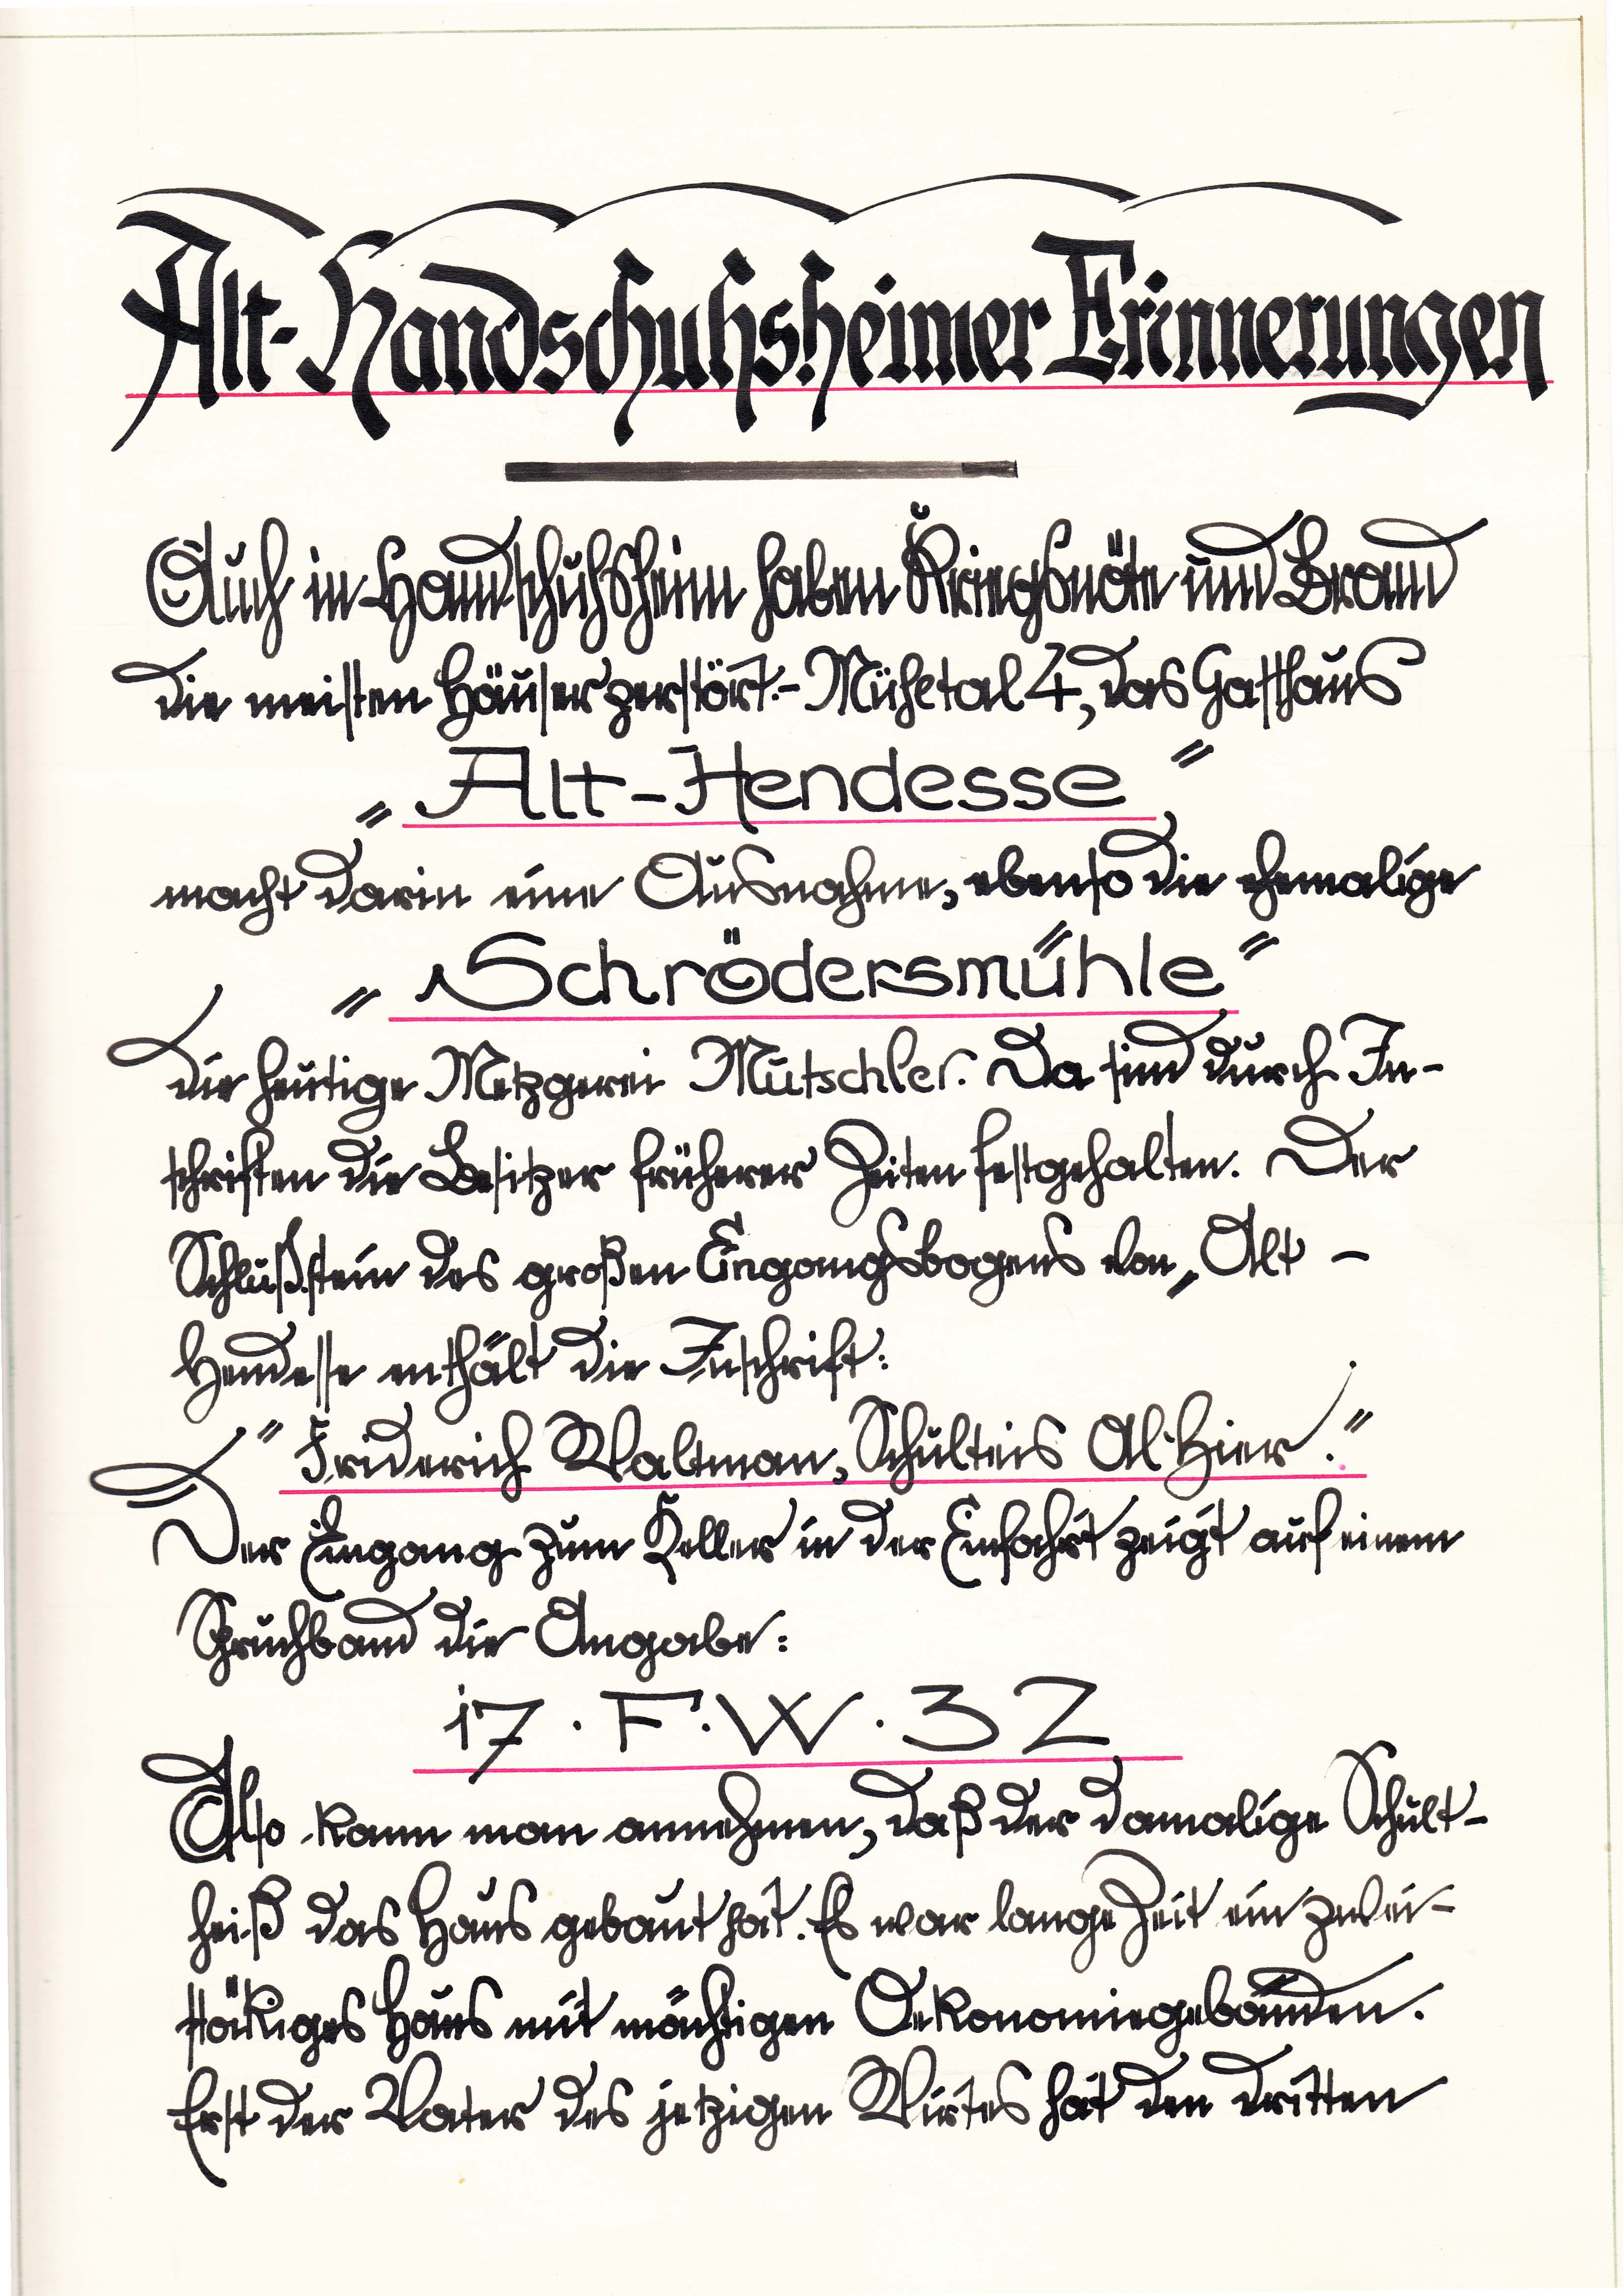 Alt-Handschuhsheimer Erinnerungen
Auch in Handschuhsheim haben Kriegsnöte und Brand
die meisten Häuser zerstört.- Mühltal 4, das Gasthaus
„Alt-Hendesse"
macht darin eine Ausnahme, ebenso die ehemalige
„Schrödersmühle"
die heutige Metzgerei Mutschler. Da sind durch In-
schriften die Besitzer früherer Zeiten festgehalten. Der
Schlußstein des großen Eingangsbogens von „Alt-
Hendesse enthält die Inschrift:
"Friderich Waltman, Schulteis Al Hier."
Der Eingang zum Keller in der Einfahrt zeigt auf einem
Spruchband die Angabe:
17 · F · W · 32
Also kann man annehmen, daß der damalige Schult-
heiß das Haus gebaut hat. Es war lange Zeit ein zwei-
stöckiges Haus mit mächtigen Oekonomiegebäuden.
Erst der Vater des jetzigen Wirtes hat den dritten